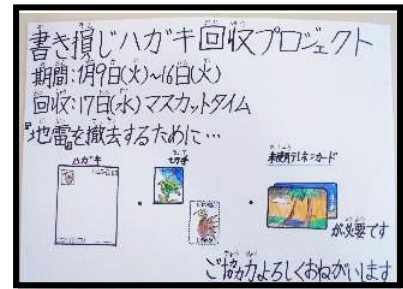 書き損じハガキ回収プロジェクト
期間:1月9日(火)~16日(火)
回収:17日(水)マスカットタイム
『地雷』を撤去するために…
ハガキ ・ 切手 ・ 未使用テレホンカード
が必要です
ご協力よろしくおねがいします